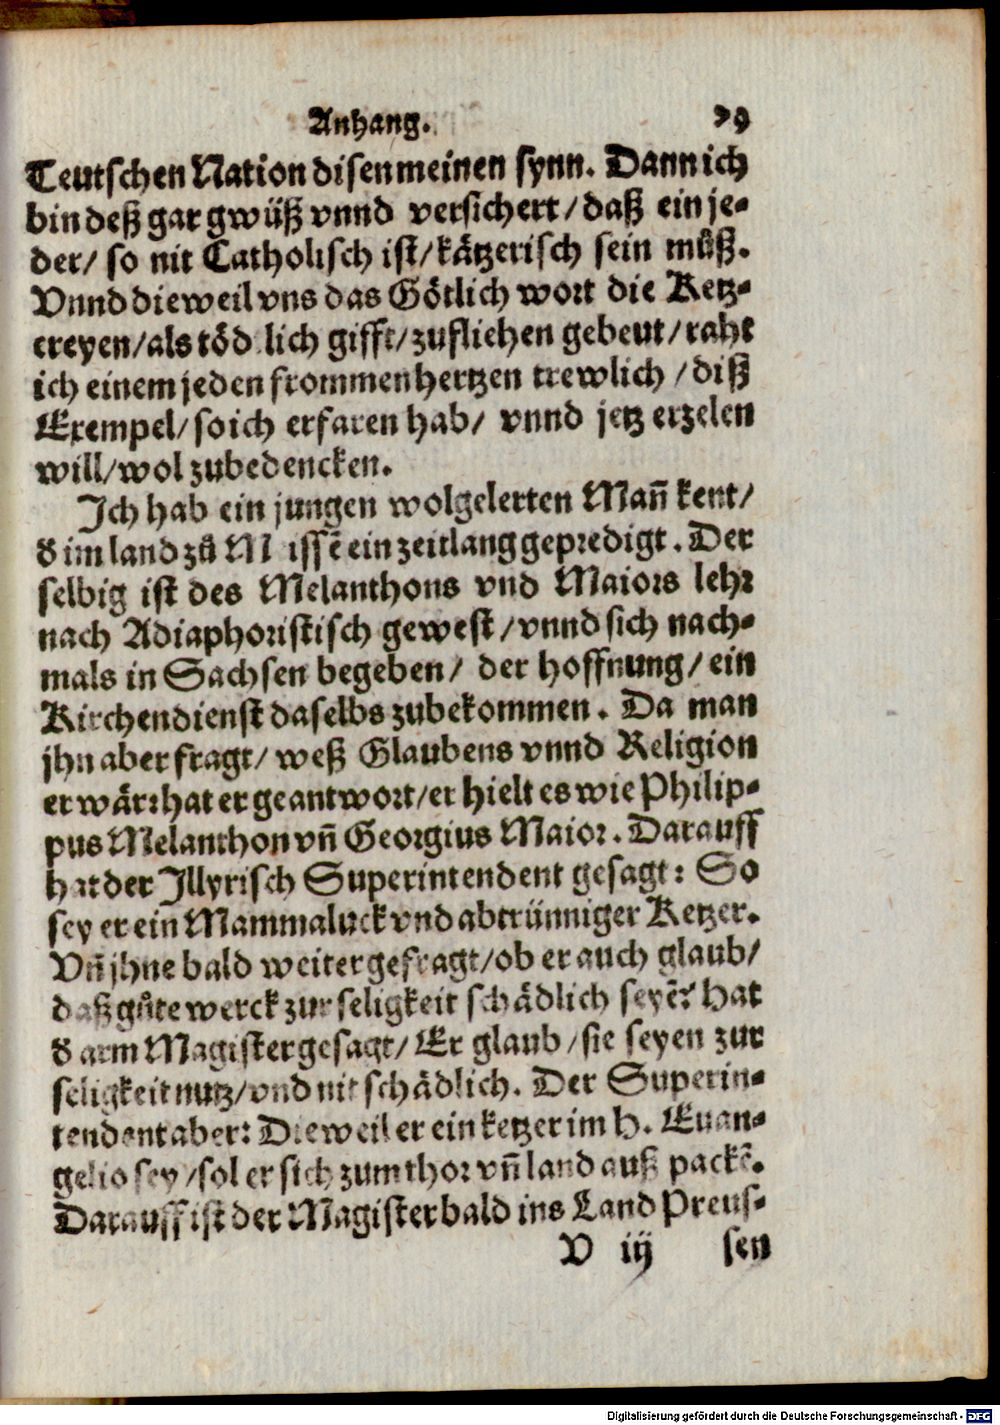 Anhang. 79
Teutschen Nation disen meinen synn. Dann ich
bin deß gar gwüß vnnd versichert/ daß ein je-
der/ so nit Catholisch ist/ kätzerisch sein muͦß.
Vnnd dieweil vns das Götlich wort die Ketz-
ereyen/ als tödlich gifft/ zufliehen gebeut/ raht
ich einem jeden frommen hertzen trewlich/ diß
Exempel/ so ich erfaren hab/ vnnd jetz erzelen
will/ wol zubedencken.
Ich hab ein jungen wolgelerten Mañ kent/
d' im land zuͦ Missē ein zeitlang gepredigt. Der
selbig ist des Melanthons vnd Maiors lehr
nach Adiaphoristisch gewest/ vnnd sich nach-
mals in Sachsen begeben/ der hoffnung/ ein
Kirchendienst daselbs zubekommen. Da man
jhn aber fragt/ weß Glaubens vnnd Religion
er wär: hat er geantwort/ er hielt es wie Philip-
pus Melanthon vñ Georgius Maior. Darauff
hat der Jllyrisch Superintendent gesagt: So
sey er ein Mammaluck vnd abtrünniger Ketzer.
Vñ jhne bald weiter gefragt/ ob er auch glaub/
daß guͦte werck zur seligkeit schädlich seyē? Hat
d' arm Magister gesagt/ Er glaub/ sie seyen zur
seligkeit nutz/ vnd nit schädlich. Der Superin-
tendent aber: Dieweil er ein ketzer im H. Euan-
gelio sey/ sol er sich zum thor vñ land auß packē.
Darauff ist der Magister bald ins Land Preus-
V iij sen
Digitalisierung gefördert durch die Deutsche Forschungsgemeinschaft - DFG